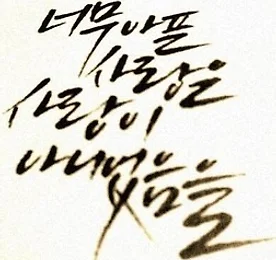 너무아픈
사랑은
사랑이
아니었음을